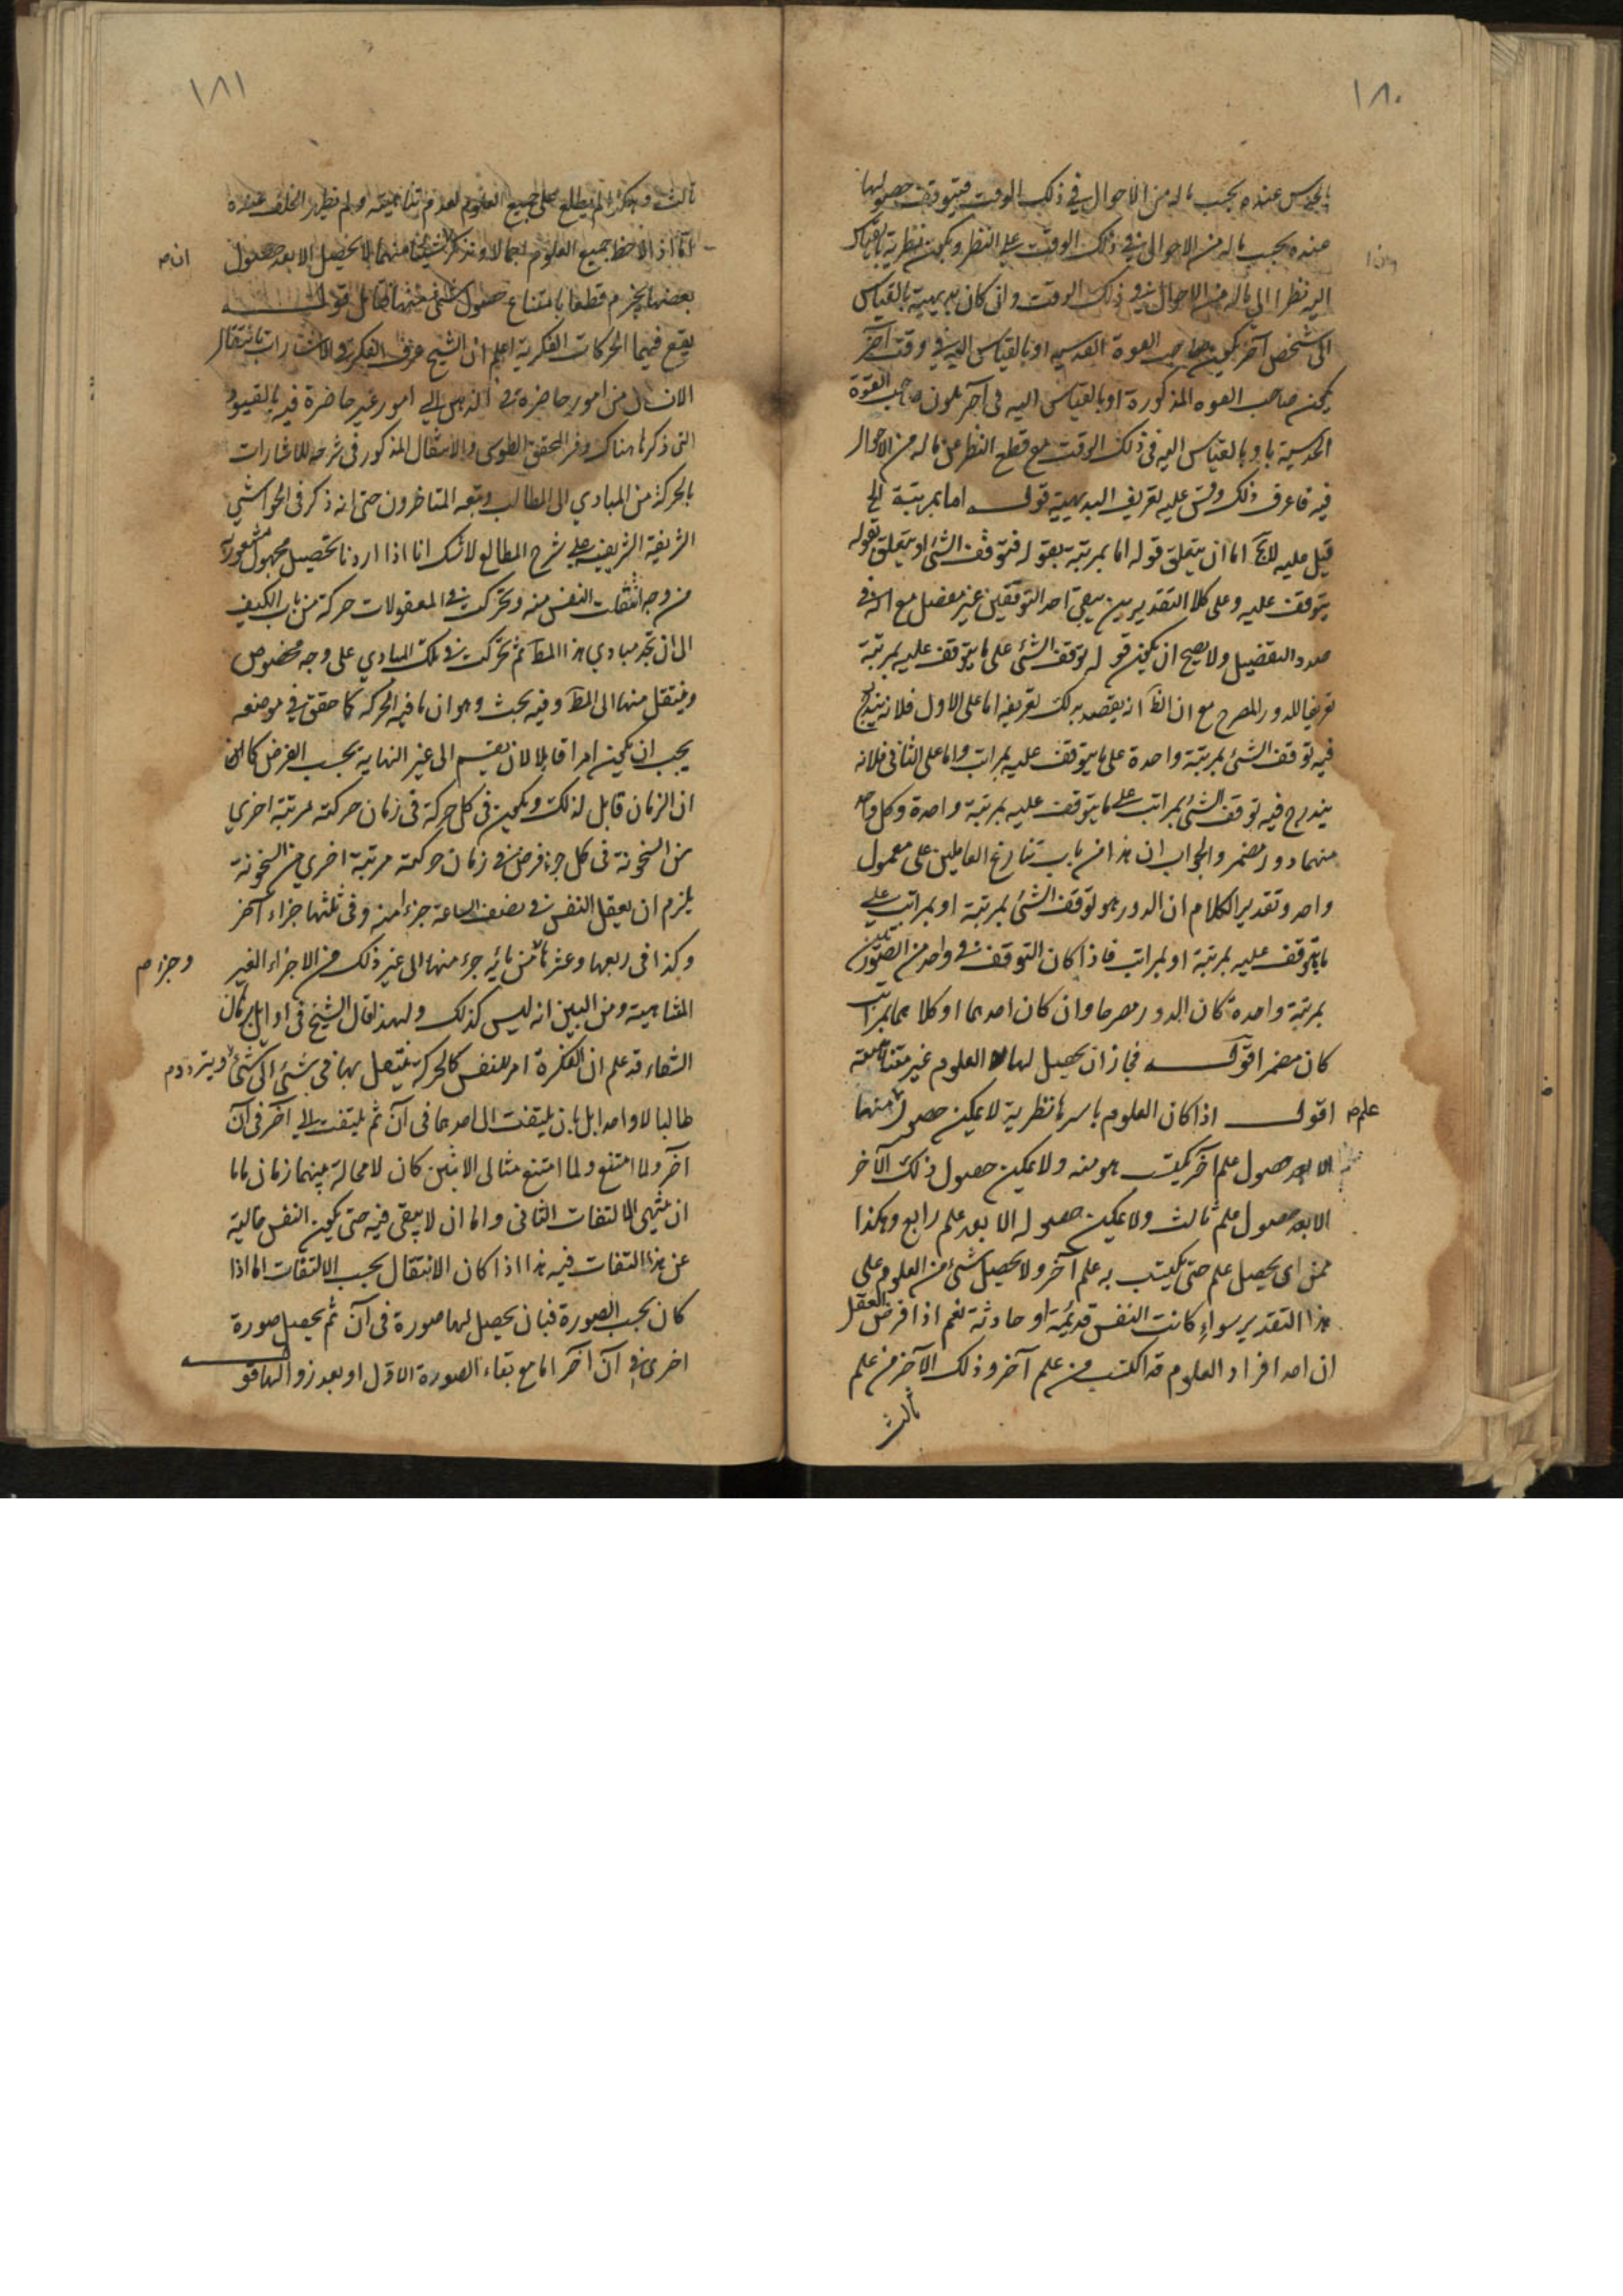 ١٨٠
عنده بحسب ماله من الاحوال في ذلك الوقت فيتوقف حصولها
عنده بحسب ماله من الاحوال في ذلك الوقت على النظر ويكون نظرية بالقياس
اليه نظرا الى ماله من الاحوال في ذلك الوقت وان كان بديهية بالقياس
الى شخص آخر يكون صاحب القوة القدسية او بالقياس اليه في وقت آخر
يكون صاحب القوه المذكورة او بالقياس اليه في آخر يكون صاحب القوة
الحدسية او بالقياس اليه في ذلك الوقت مع قطع النظر عن ماله من الاحوال
فيه فاعرف ذلك وقس عليه تعريف البديهية قوله اما بمرتبة الخ
قيل عليه اما ان يتعلق قوله اما بمرتبة بقوله فتوقف الشئ او يتعلق بقوله
يتوقف عليه وعلى كلا التقديرين يبقى احد التوقفين غير مفصل مع انه في
صدد التفصيل ولا يصح ان يكون قوله توقف الشئ على ما يتوقف عليه بمرتبة
تعريفا للدور المصرح مع ان الظ انه يقصد بذلك تعريفه اما على الاول فلانه يندرج
فيه توقف الشئ بمرتبة واحدة على ما يتوقف عليه بمراتب واما على الثاني فلانه
يندرج فيه توقف الشئ بمراتب على ما يتوقف عليه بمرتبة واحدة وكل واحد
منهما دور مضمر والجواب ان هذا من باب تنازع العاملين على معمول
واحد وتقدير الكلام ان الدور هو توقف الشئ بمرتبة او بمراتب على
ما يتوقف عليه بمرتبة او بمراتب فاذا كان التوقف في واحد من الصورتين
بمرتبة واحدة كان الدور مصرحا وان كان احدهما او كلاهما بمراتب
كان مضمرا قوله فجاز ان يحصل لها العلوم غير متناهية
علم اقول اذا كان العلوم باسرها نظرية لا يمكن حصول شئ منها
الا بعد حصول علم آخر يكتسب هو منه ولا يمكن حصول ذلك الآخر
الا بعد حصول علم ثالث ولا يمكن حصوله الا بعد علم رابع وهكذا
فمن اى يحصل علم حتى يكتسب به علم آخر ولا يحصل شئ من العلوم على
هذا التقدير سواء كانت النفس قديمة او حادثة نعم اذا فرض العقل
ان احد افراد العلوم قد اكتسب من علم آخر وذلك الآخر من علم
ثالث
١٨١
ثالث وهكذا لم يطلع على جميع العلوم لعدم تناهيه ولم يظهر الخلف عنده
اما اذا لاحظ جميع العلوم اجمالا وتذكر ان شيئا منهما لا يحصل الا بعد حصول ان
بعضها يجزم قطعا بامتناع حصول شئ منها تأمل قوله
يقع فيهما الحركات الفكرية اعلم ان الشيخ عرف الفكر في الاشارات بانتقال
الانسان من امور حاضرة في الذهن الى امور غير حاضرة فيه بالقيود
التى ذكرها هناك وفسر المحقق الطوسى الانتقال المذكور في شرحه للاشارات
بالحركة من المبادي الى المطالب وتبعه المتاخرون حتى انه ذكر في الحواشي
الشريفة الشريفية على شرح المطالع لا شك انا اذا اردنا تحصيل مجهول مشعور به
من وجه انتقلت النفس منه وتحركت في المعقولات حركة من باب الكيف
الى ان تجد مبادي هذا المط ثم تحركت في تلك المبادي على وجه مخصوص
وينتقل منها الى المط وفيه بحث وهو ان ما فيه الحركة كما حقق في موضعه
يجب ان يكون امرا قابلا لان يقسم الى غير النهاية بحسب الفرض كما
ان الزمان قابل لذلك ويكون في كل حركة في زمان حركته مرتبة اخري
من السخونة في كل جزء فرض في زمان حركته مرتبة اخري من السخونة
يلزم ان يعقل النفس في نصف الساعة جزءا منه وفي ثلثها جزاء آخر
وكذا في ربعها وعشرها من مائة جزء منها الى غير ذلك من الاجزاء الغير وجزء
المتناهية ومن البين انه ليس كذلك ولهذا قال الشيخ في اوايل برهان
الشفاء قد علم ان الفكرة امر للنفس كالحركة ينتقل بها في شئ الى شئ ويتردد
طالبا لا واحدا بل بان يلتفت الى احدهما في آن ثم يلتفت الى آخر في آن
آخر ولما امتنع تتالى الاثنين كان لا محالة بينهما زمان فاما
ان ينتهي الالتفات الثاني واما ان لا يبقى فيه حتى يكون النفس خالية
عن هذا التفات فيه هذا اذا كان الانتقال بحسب الالتفات اما اذا
كان بحسب الصورة فبان يحصل لها صورة في آن ثم يحصل صورة
اخرى في آن آخر اما مع بقاء الصورة الاول او بعد زوالها قوله